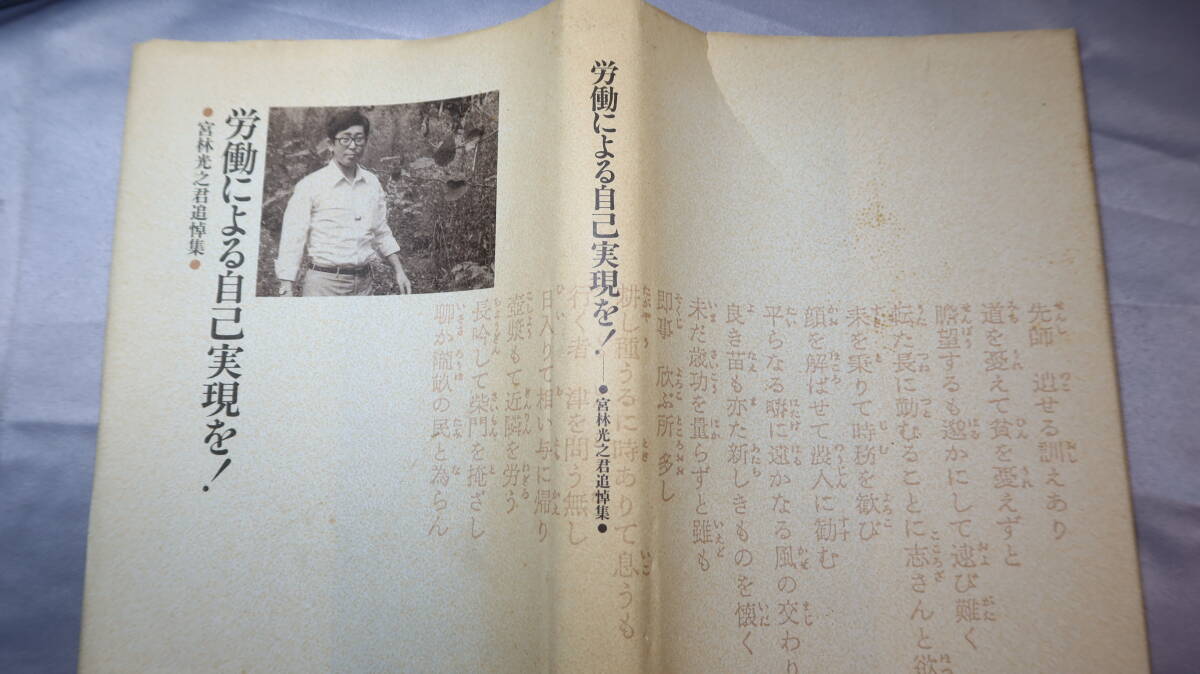 労働による自己実現を!
●宮林光之君追悼集●
労働による自己実現を!
●宮林光之君追悼集●
先師 遺せる訓えあり
道を憂えて貧を憂えずと
瞻望するも邈かにして逮び難く
転た長に勤むることに志さんと欲
耒を秉りて時務を歓び
顔を解ばせて農人に勧む
平らなる疇に遠かなる風の交わり
良き苗も亦た新しきものを懐く
未だ歳功を量らずと雖も
即事 欣ぶ所 多し
耕し種うるに時ありて息うも
行く者 津を問う無し
日入りて相い与に帰り
壺漿もて近隣を労う
長吟して柴門を掩ざし
聊か隴畝の民と為らん